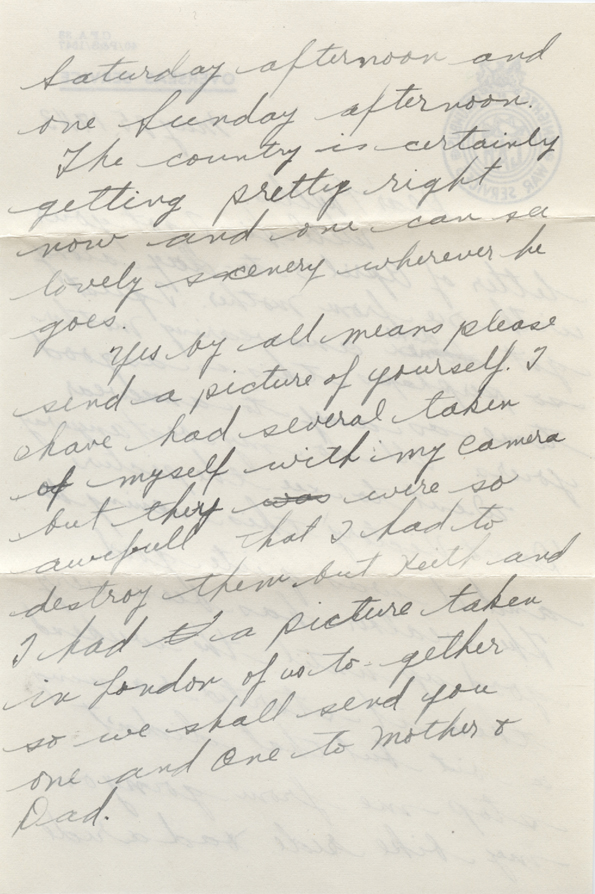 Saturday afternoon and
one Sunday afternoon.
The country is certainly
getting pretty right
now and one can se
lovely scenery wherever he
goes.
Yes by all means please
send a picture of yourself. I
have had several taken
of myself with my camera
but they was were so
awefull that I had to
destroy them but Keith and
I had a picture taken
in London of us to-gether
so we shall send you
one and one to Mother &
Dad.